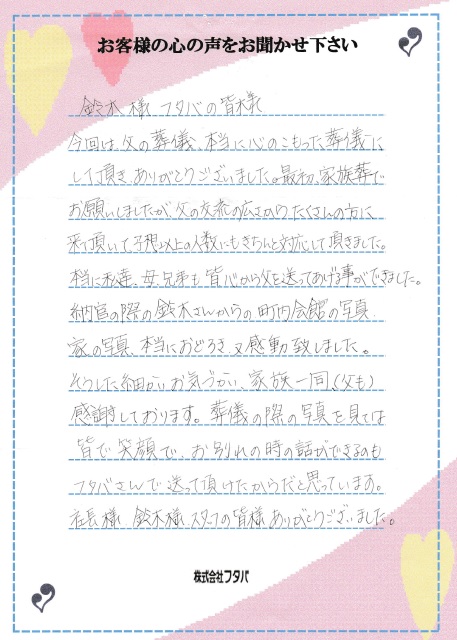 お客様の心の声をお聞かせ下さい
鈴木様 フタバの皆様
今回は、父の葬儀、本当に心のこもった葬儀に
して頂き、ありがとうございました。最初、家族葬で
お願いしましたが、父の交流の広さからたくさんの方に
来て頂いて予想以上の人数にもきちんと対応して頂きました。
本当に私達、母、兄弟も皆心から父を送ってあげる事ができました。
納官の際の鈴木さんからの町内会館の写真
家の写真、本当におどろき、又感動致しました。
そうした細かいお気づかい、家族一同、(父も)
感謝しております。葬儀の際の写真を見ては
皆で笑顔で、お別れの時の話ができるのも
フタバさんで送って頂けたからだと思っています。
社長様 鈴木様、スタッフの皆様ありがとうございました。
株式会社フタバ